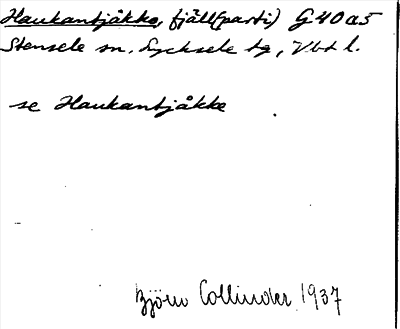 Haukantjåkko, fjäll(parti) G40a5
Stensele sn, Lycksele tg, Vbt l.
se Haukantjåkke
Björn Collinder 1937